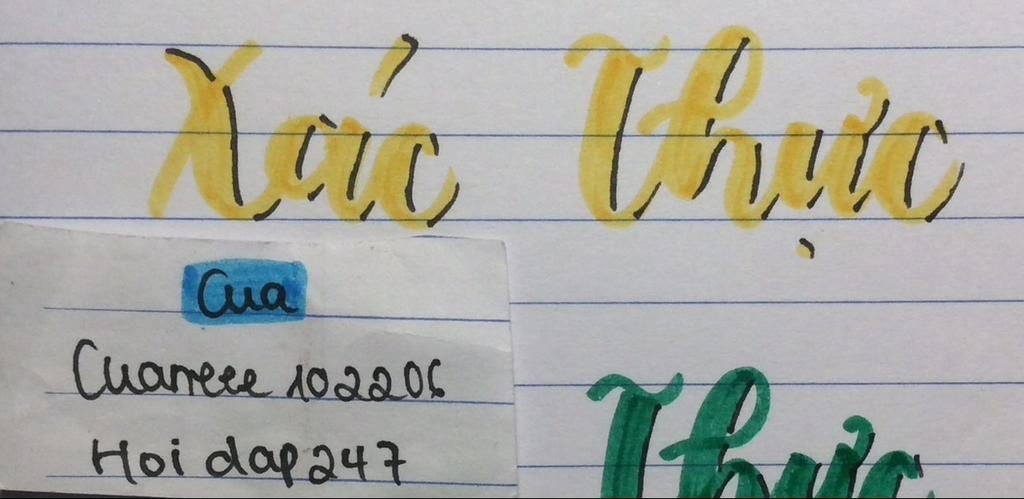 Xác Thực
Cua
Cuarreee 102206
Hoi dap 247
Thực